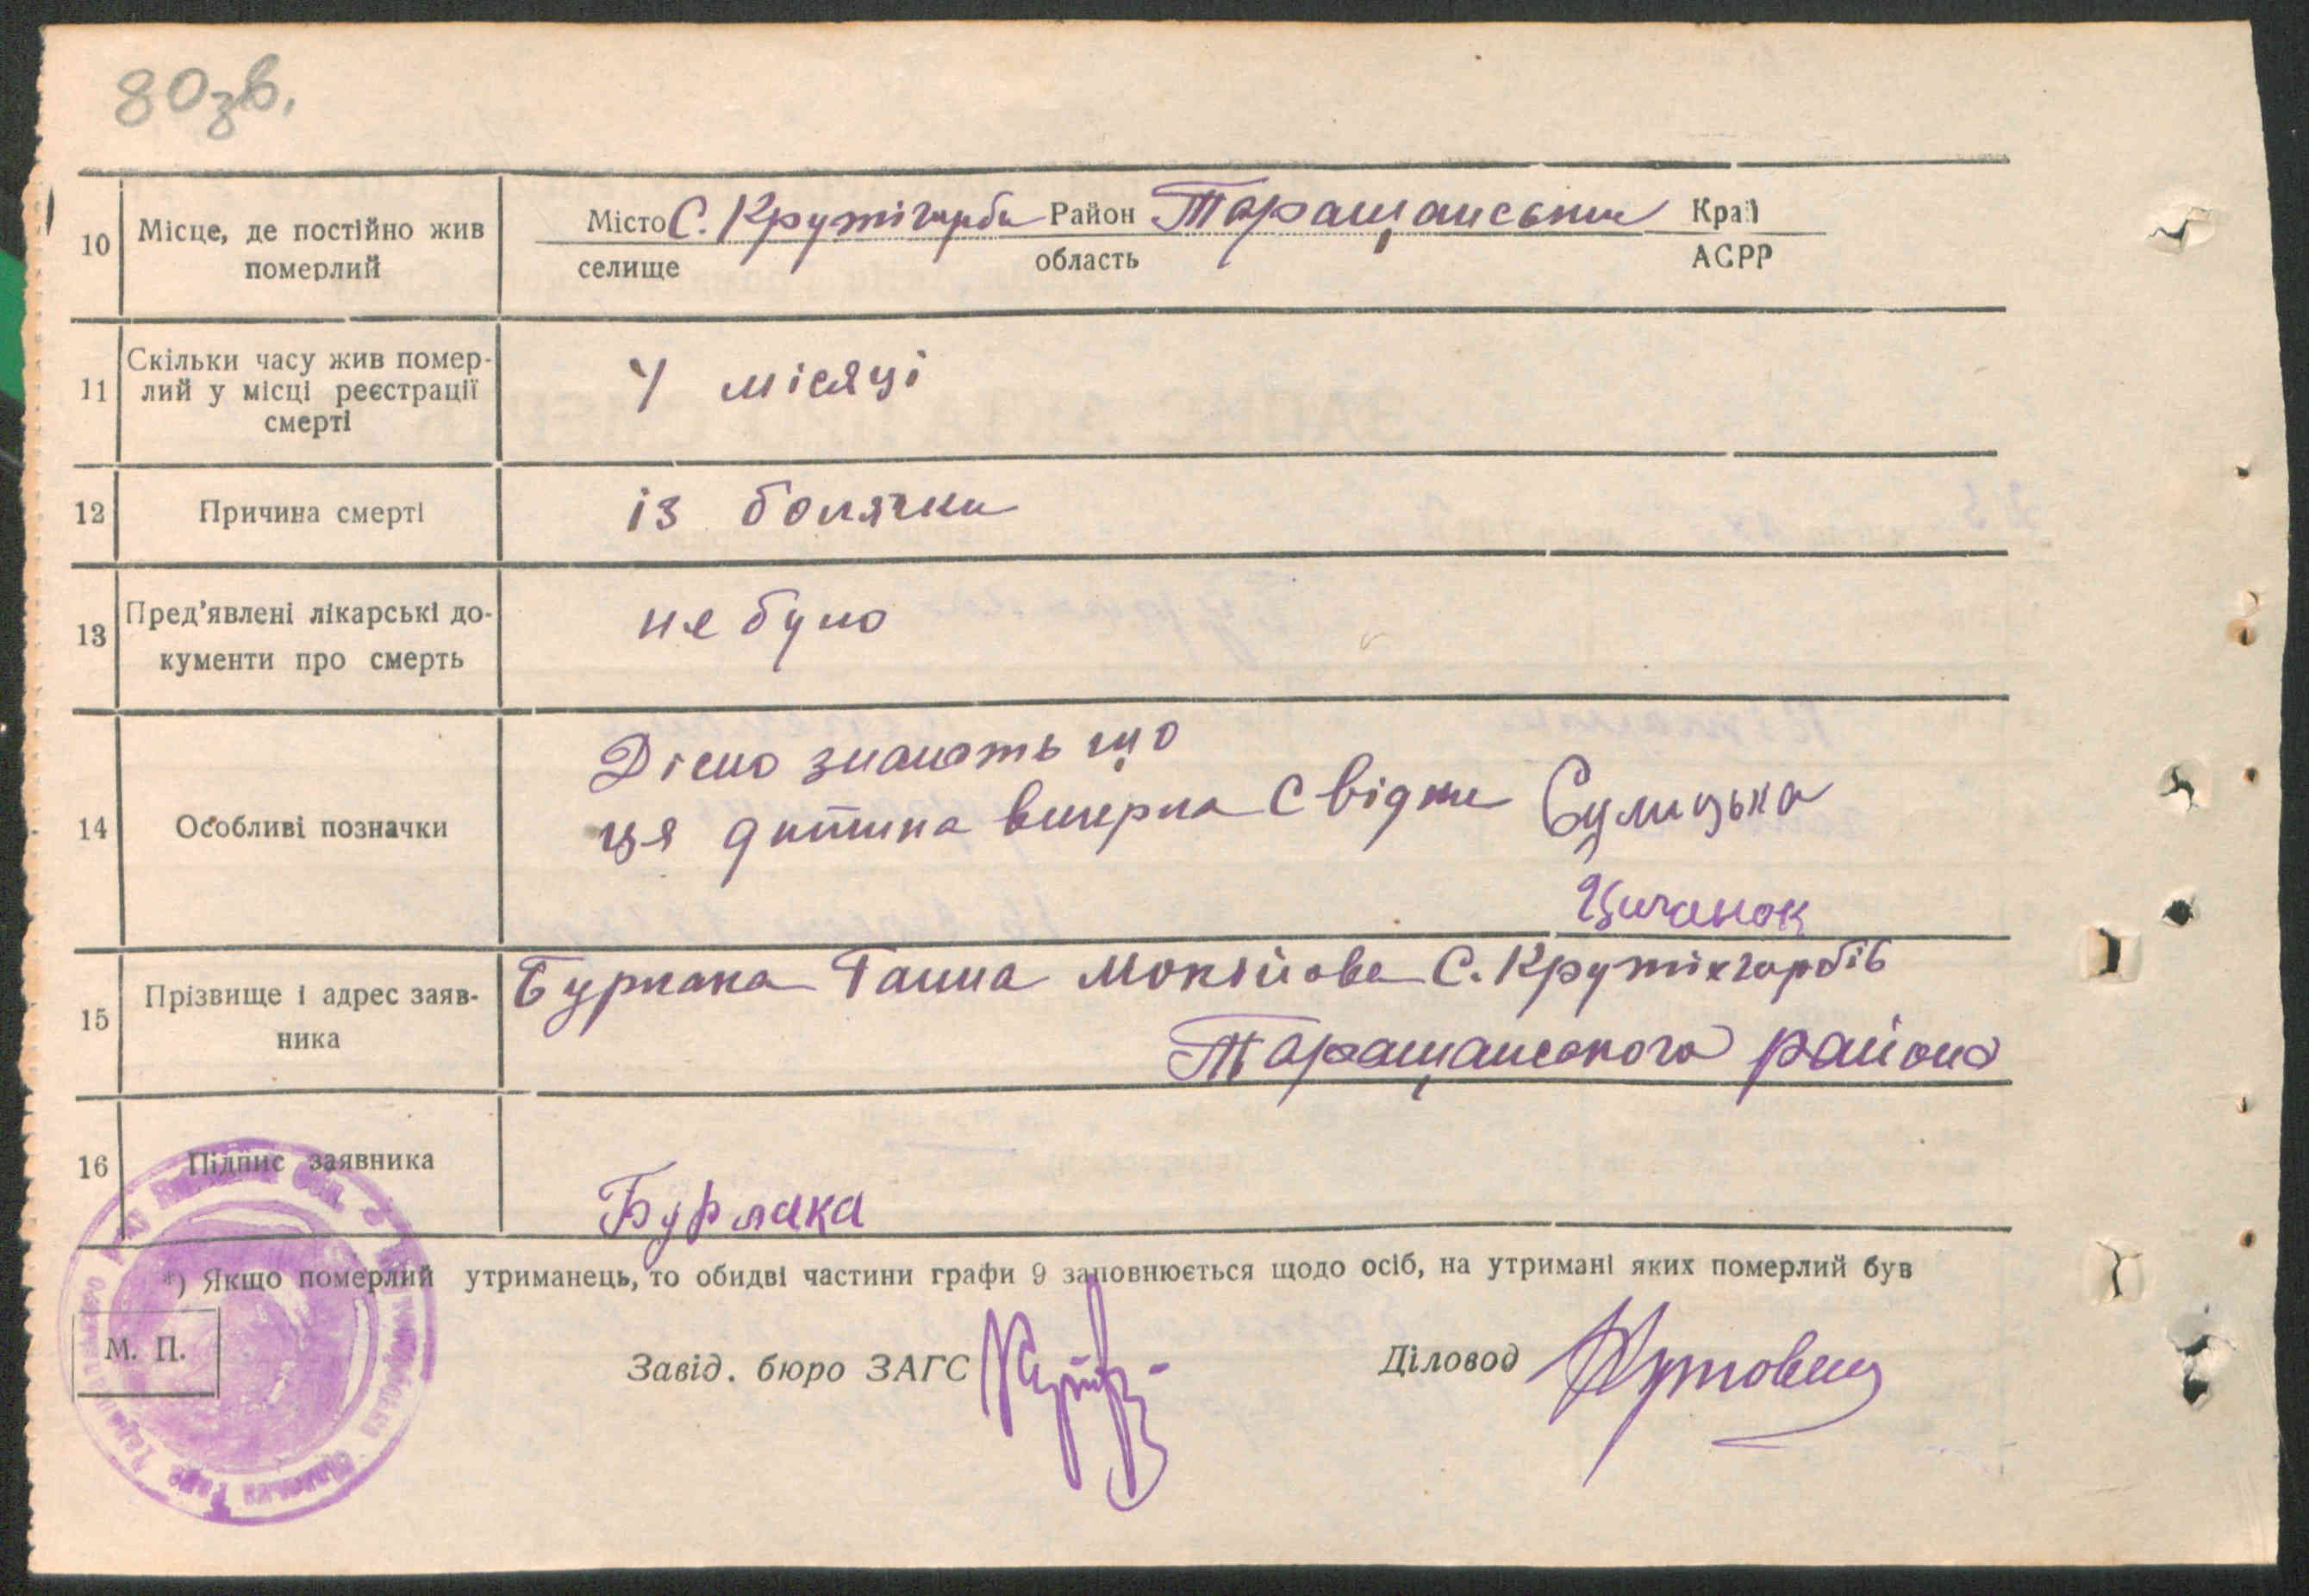 80зв.
10 Місце, де постійно жив померлий
Місто С. Крутігорби Район Таращанський Край
селище область АСРР
11 Скільки часу жив помер-
лий у місці реєстрації
смерті
4 місяці
12 Причина смерті із болячки
13 Пред'явлені лікарські до-
кументи про смерть
не було
14 Особливі позначки
Дісно знають що
ця дитина вмерла Свідки Сулицька
Циганок
15 Прізвище і адрес заяв-
ника
Бурлака Ганна Мокійова С. Крутихгорбів
Таращанського района
16 Підпис заявника
Бурлака
*) Якщо померлий утриманець, то обидві частини графи 9 заповнюється щодо осіб, на утримані яких померлий був
М. П.
Завід. бюро ЗАГС
Діловод